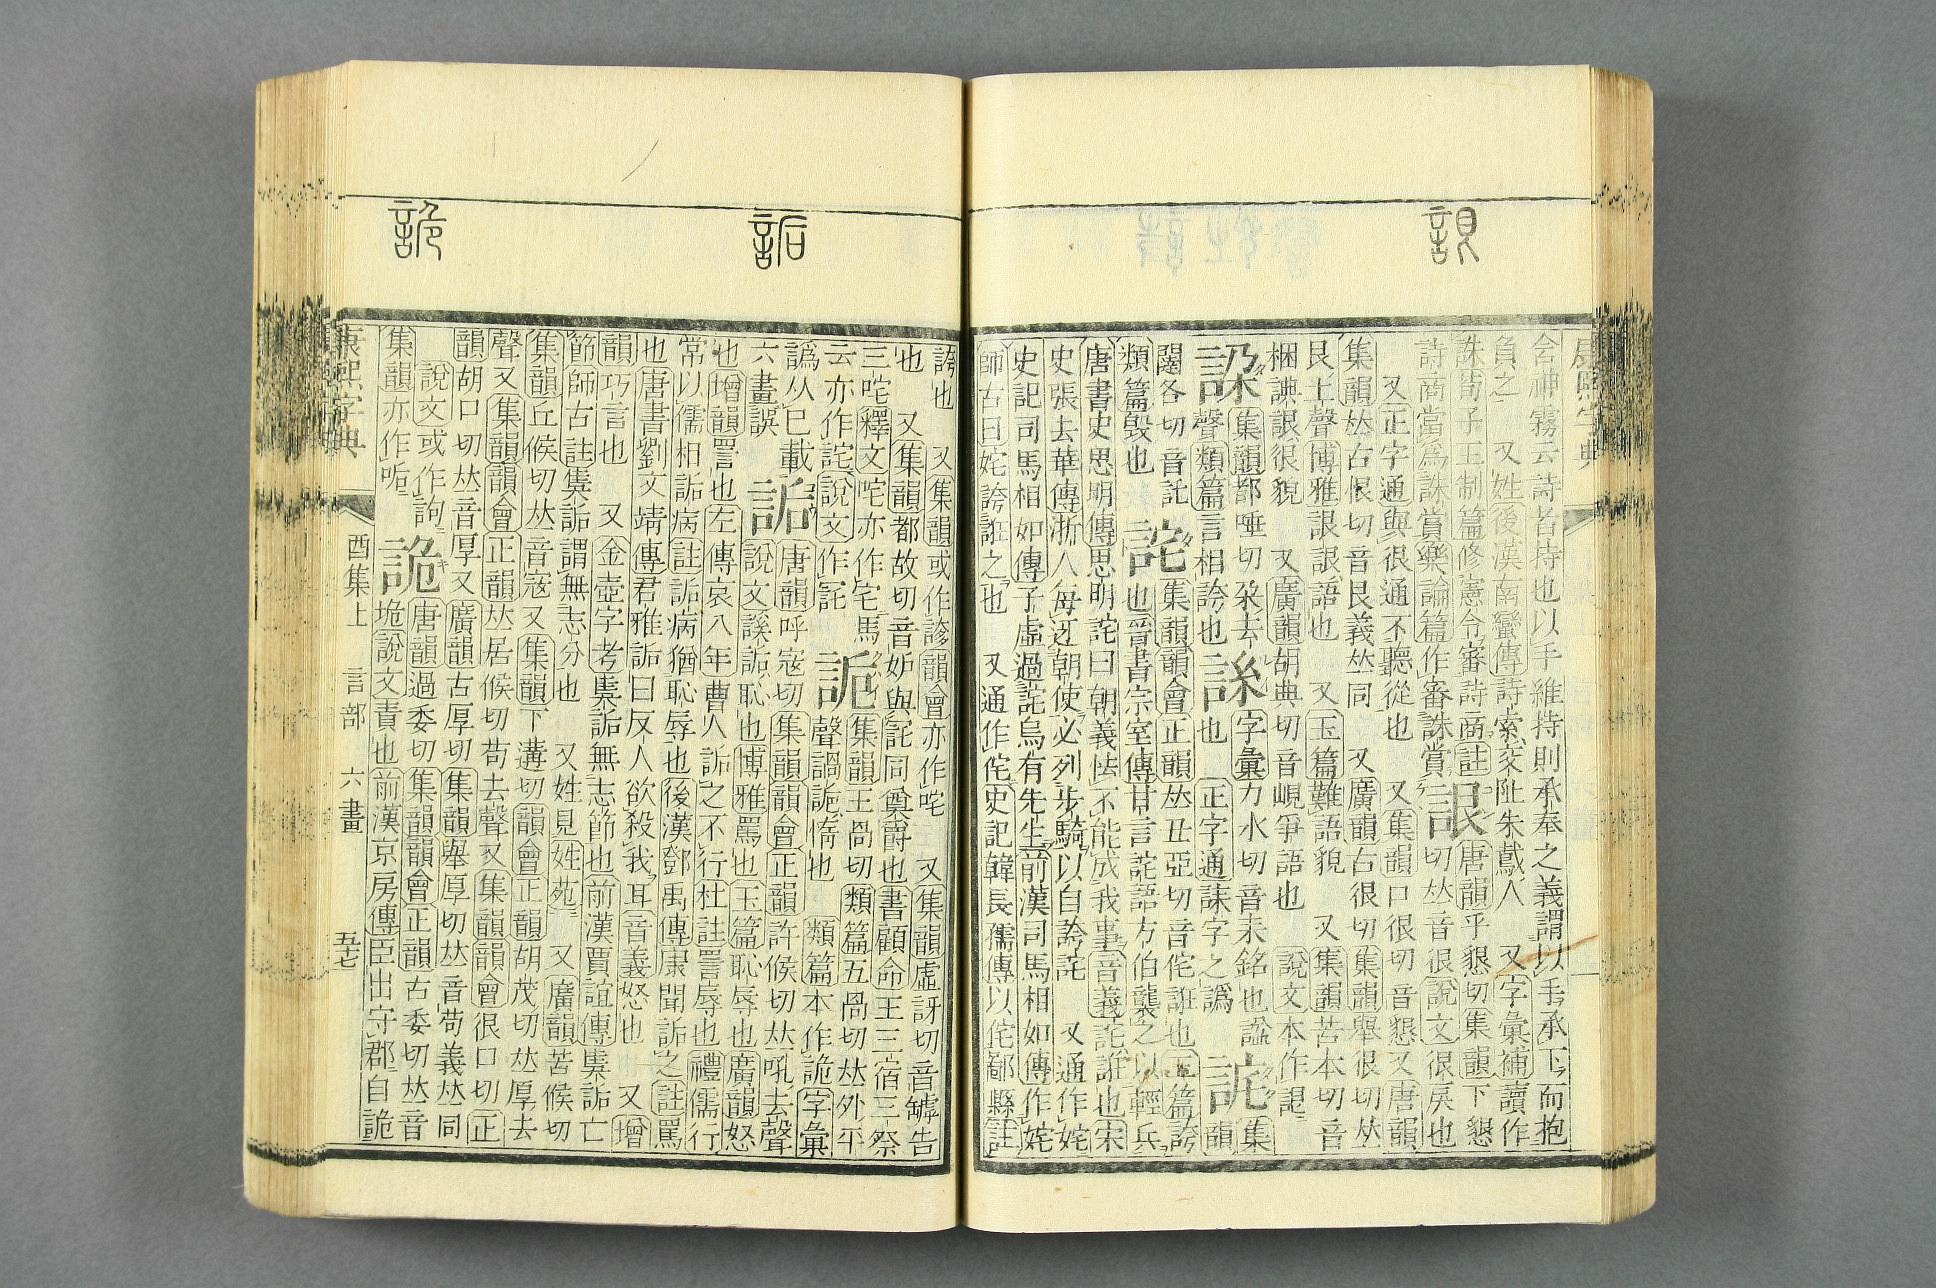 詪
康熙字典
含神霧云詩者持也以手維持則承奉之義謂以手承下而抱
負之 又姓後漢南蠻傳詩索交阯朱鳶人 又字彙補讀作
誅荀子王制篇修憲令審詩商註
詩商當爲誅賞樂論篇作審誅賞
詪 唐韻乎懇切集韻下懇
切𠀤音很說文很戾也
又正字通與很通不聽從也 又集韻口很切音懇又唐韻
集韻𠀤古恨切音艮義𠀤同 又廣韻古很切集韻舉很切𠀤
艮上聲博雅詪詪語也 又玉篇難語貌 又集韻苦本切音
梱詪很貌 又廣韻胡典切音峴爭語也 說文本作
集韻都唾切朵去
聲類篇言相誇也
字彙力水切音耒銘也諡
也 正字通誄字之譌
集
韻
闥各切音託
類篇毀也
詫 集韻韻會正韻𠀤丑亞切音侘誑也玉篇誇
也晉書宗室傳甘言詫語方伯襲之以輕兵
唐書史思明傳思明詫曰朝義怯不能成我事音義詫誑也宋
史張去華傳浙人每迓朝使必列步騎以自誇詫 又通作姹
史記司馬相如傳子虛過詫烏有先生前漢司馬相如傳作姹
師古曰姹誇誑之也 又通作侘史記韓長孺傳以侘鄙縣註
詬
詭
誇也 又集韻或作謻韻會亦作咤 又集韻虛訝切音罅告
也 又集韻都故切音妒與同奠爵也書顧命王三宿三祭
三咤釋文咤亦作宅馬
云亦作詫說文作
集韻王咼切類篇五咼切𠀤外平
聲惰也 類篇本作詭字彙
譌从巳載
六畫誤
詬 唐韻呼寇切集韻韻會正韻許候切𠀤吼去聲
說文謑詬恥也博雅罵也玉篇恥辱也廣韻怒
也增韻詈也左傳哀八年曹人詬之不行杜註詈辱也禮儒行
常以儒相詬病註詬病猶恥辱也後漢鄧禹傳康聞詬之註罵
也唐書劉文靖傳君雅詬曰反人欲殺我耳音義怒也 又增
韻巧言也 又金壺字考奊詬無志節也前漢賈誼傳奊詬亡
節師古註奊詬謂無志分也 又姓見姓苑 又廣韻苦候切
集韻丘候切𠀤音寇又集韻下遘切韻會正韻胡茂切𠀤厚去
聲又集韻韻會正韻𠀤居候切苟去聲又集韻韻會很口切正
韻胡口切𠀤音厚又廣韻古厚切集韻舉厚切𠀤音苟義𠀤同
說文或作訽
集韻亦作
詭 唐韻過委切集韻韻會正韻古委切𠀤音
垝說文責也前漢京房傳臣出守郡自詭
康熙字典 酉集上 言部 六畫 五七